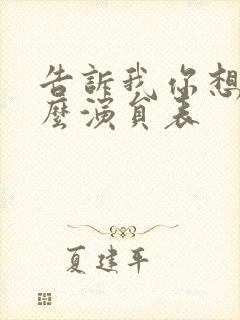 告訴我你想
麼演員表
夏建平